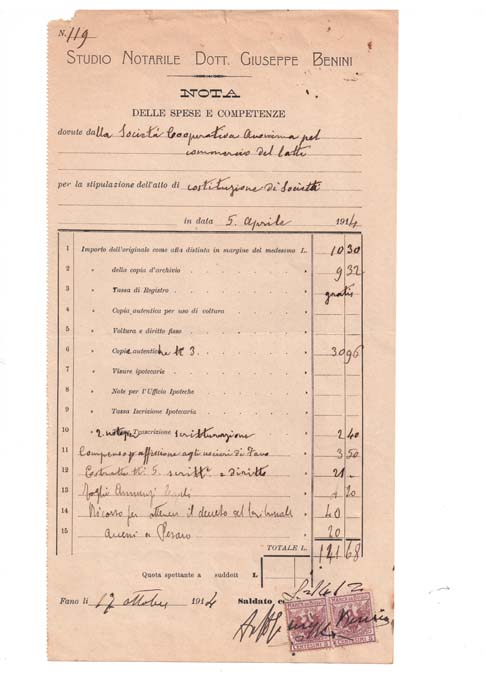 N. 119
STUDIO NOTARILE DOTT. GIUSEPPE BENINI
NOTA
DELLE SPESE E COMPETENZE
dovute dalla Società Cooperativa Anonima pel
commercio del latte
per la stipulazione dell'atto di costituzione di Società
in data 5. Aprile 1914
1 Importo dell'originale come alla distinta in margine del medesimo L. 10 30
2 » della copia d'archivio 9 32
3 » Tassa di Registro gratis
4 » Copia autentica per uso di voltura
5 » Voltura e diritto fisso
6 » Copie autentiche N 3. 30 96
7 » Visure ipotecarie
8 » Note per l'Ufficio Ipoteche
9 » Tassa Iscrizione Ipotecaria
10 » 2 note per Trascrizione scritturazione 2 40
11 Compenso p affissione agli uscieri di Fano 3 50
12 Estratti N. 5 scritt.ª e diritto 21 -
13 Foglio Annunzi 20
14 Ricorso per ottenere il decreto del tribunale 40
15 accessi a Pesaro 20
TOTALE L. 141 68
Quota spettante a suddett L
Fano li 17 ottobre 1914 Saldato
CENTESIMI 5 CENTESIMI 5